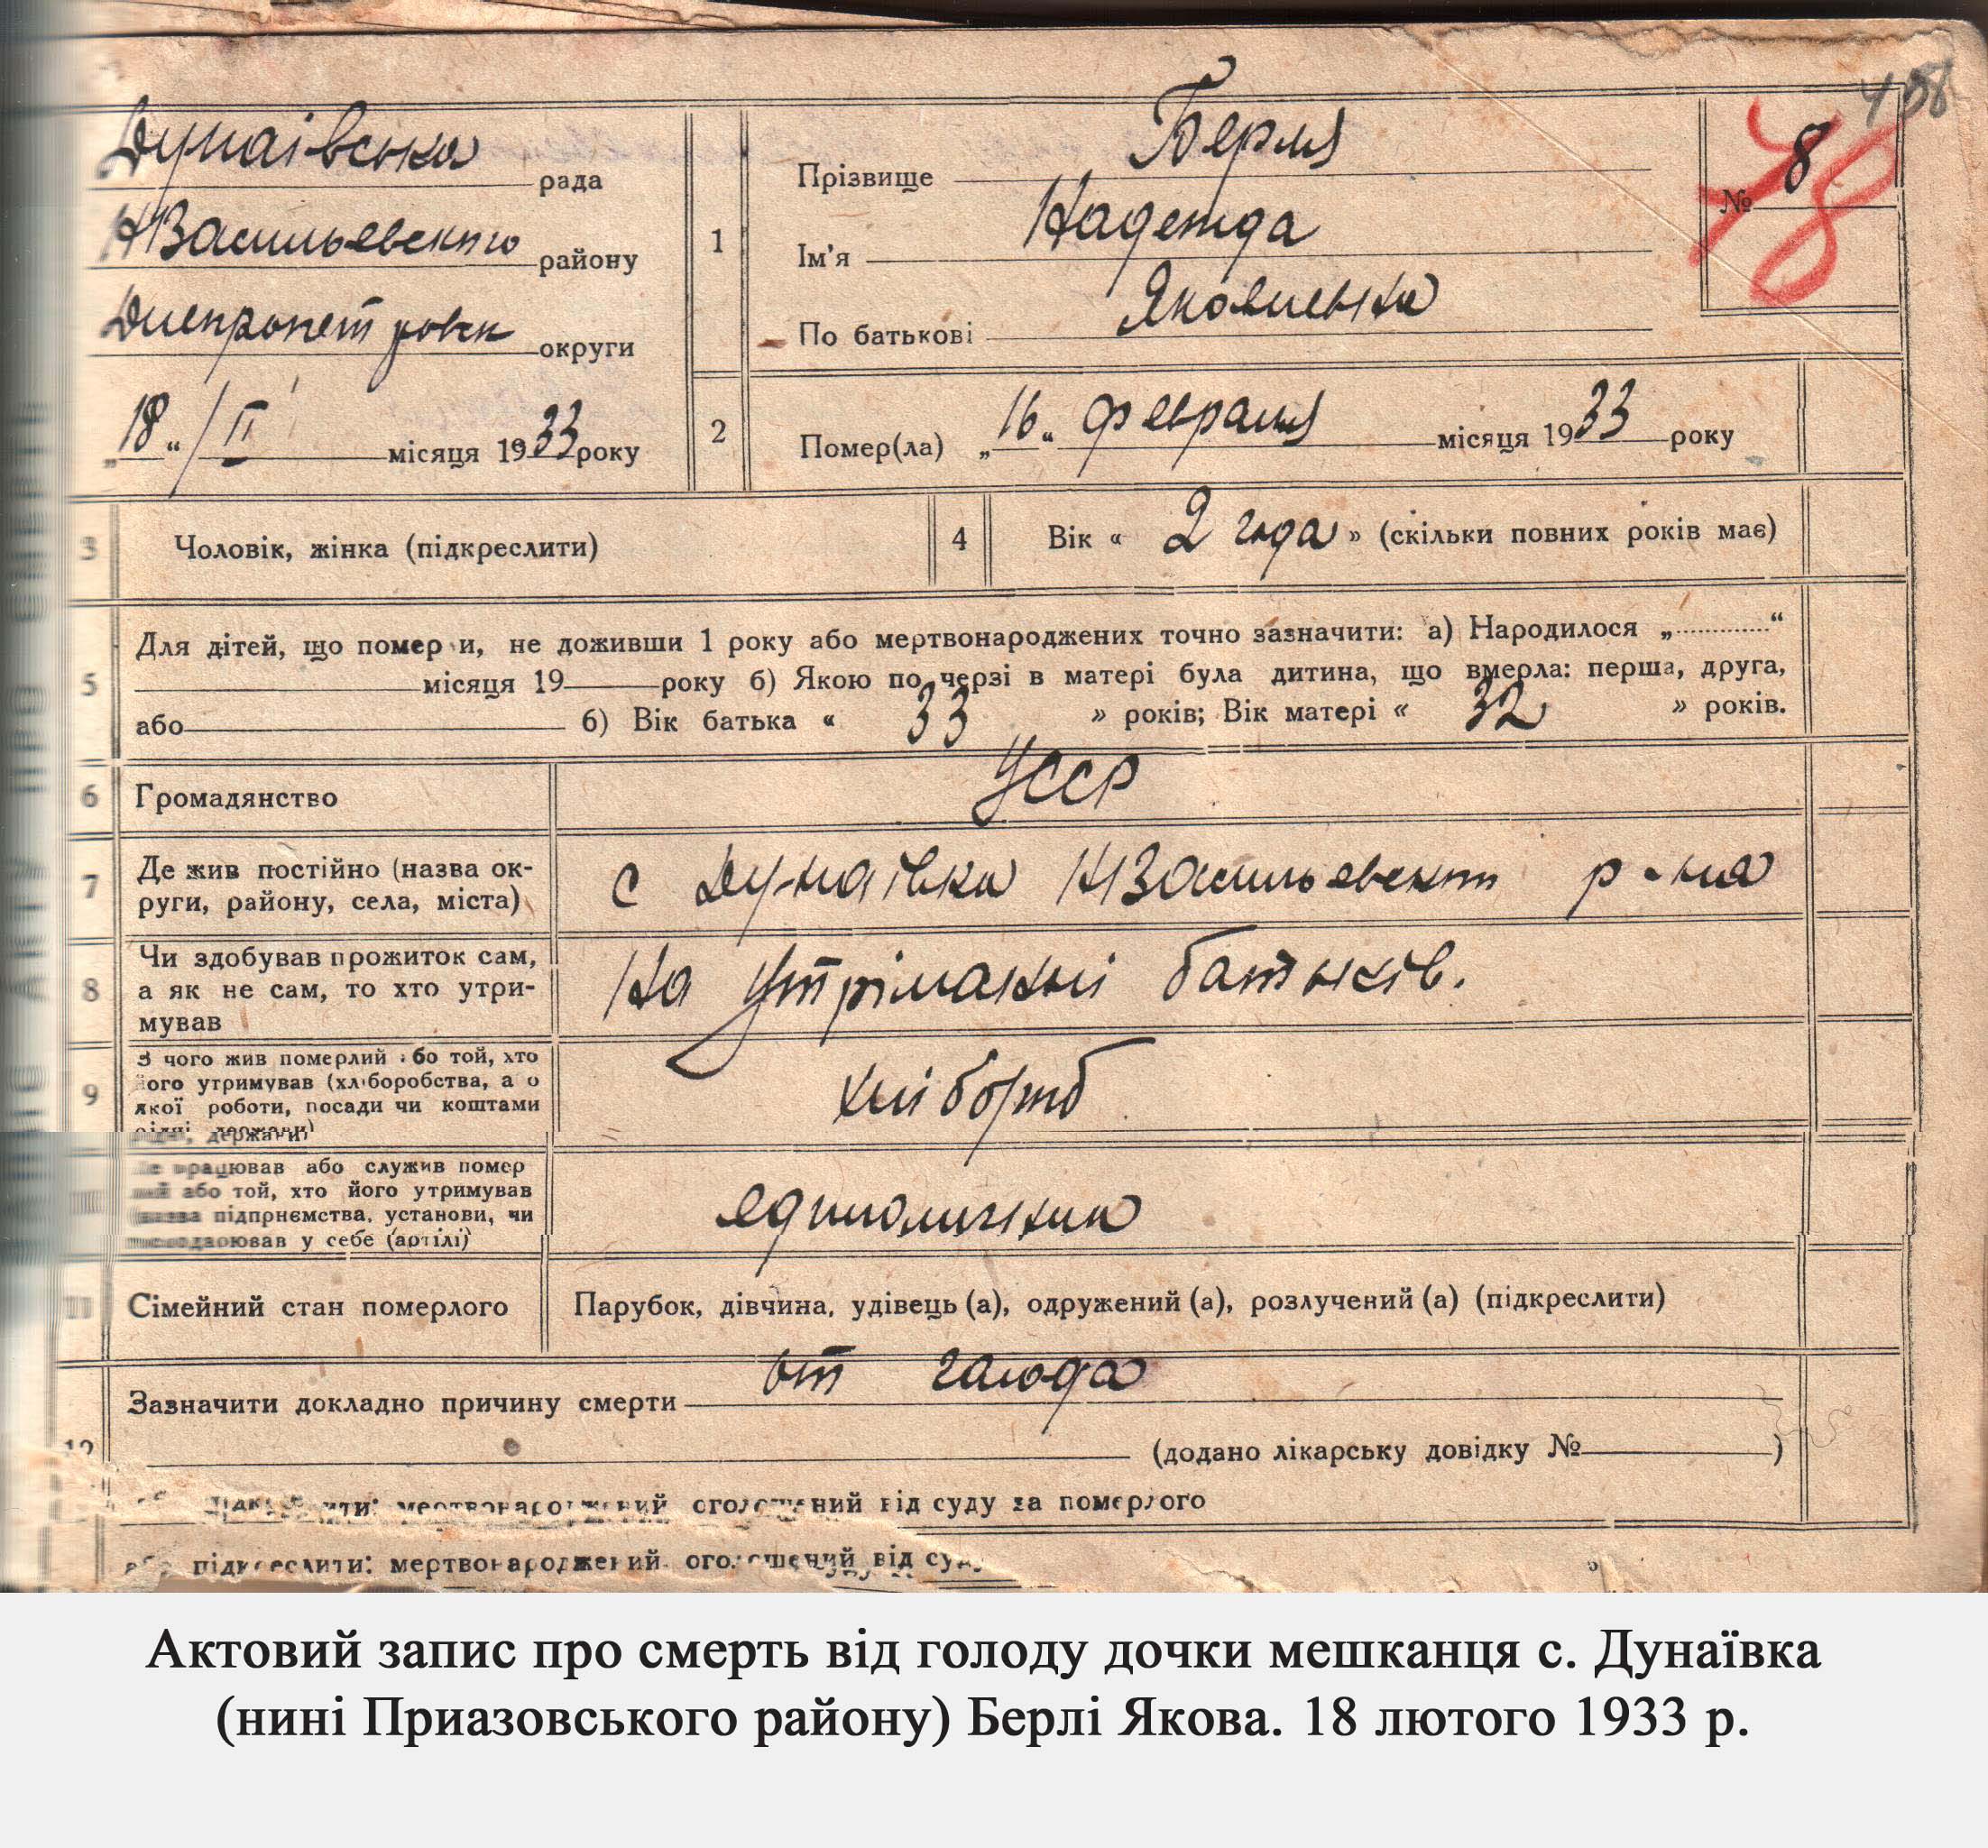 458
Дунаівська рада
НВасильевского району
Днепропетровск округи
„18“ /II місяця 1933 року
1
Прізвище Берля
Ім'я Надежда
По батькові Яковлевна
№ 8
78
2
Помер(ла) „16“ февраля місяця 1933 року
3
Чоловік, жінка (підкреслити)
4
Вік « 2 года » (скільки повних років має)
5
Для дітей, що помер и, не доживши 1 року або мертвонароджених точно зазначити: а) Народилося „............“
місяця 19 року б) Якою по черзі в матері була дитина, що вмерла: перша, друга,
або б) Вік батька « 33 » років; Вік матері « 32 » років.
6
Громадянство
УССР
7
Де жив постійно (назва ок-
руги, району, села, міста)
с Дунаівка НВасильевск р-на
8
Чи здобував прожиток сам,
а як не сам, то хто утри-
мував
На утріманні батьків.
9
З чого жив померлий або той, хто
його утримував (хліборобства, а о
якої роботи, посади чи коштами
рідні, держави)
хлібороб
Де працював або служив помер
лий або той, хто його утримував
(назва підприємства, установи, чи
господарював у себе (артілі)
единоличник
11
Сімейний стан померлого
Парубок, дівчина, удівець (а), одружений (а), розлучений (а) (підкреслити)
12
Зазначити докладно причину смерти от галода
(додано лікарську довідку № )
мертвонароджений оголошений від суду за померлого
або підкреслити: мертвонароджений оголошений від суду
Актовий запис про смерть від голоду дочки мешканця с. Дунаївка
(нині Приазовського району) Берлі Якова. 18 лютого 1933 р.